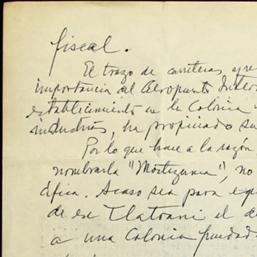 fiscal.
El trazo de carreteras, y re
importancia del Aeropuerto Inter
establecimiento en la Colonia
industrias, ha propiciado su
Por lo que hace a la razón
nombrarla "Moctezuma", no
cífica. Acaso sea para equ
de ese Tlatoani el d
a una Colonia fundad